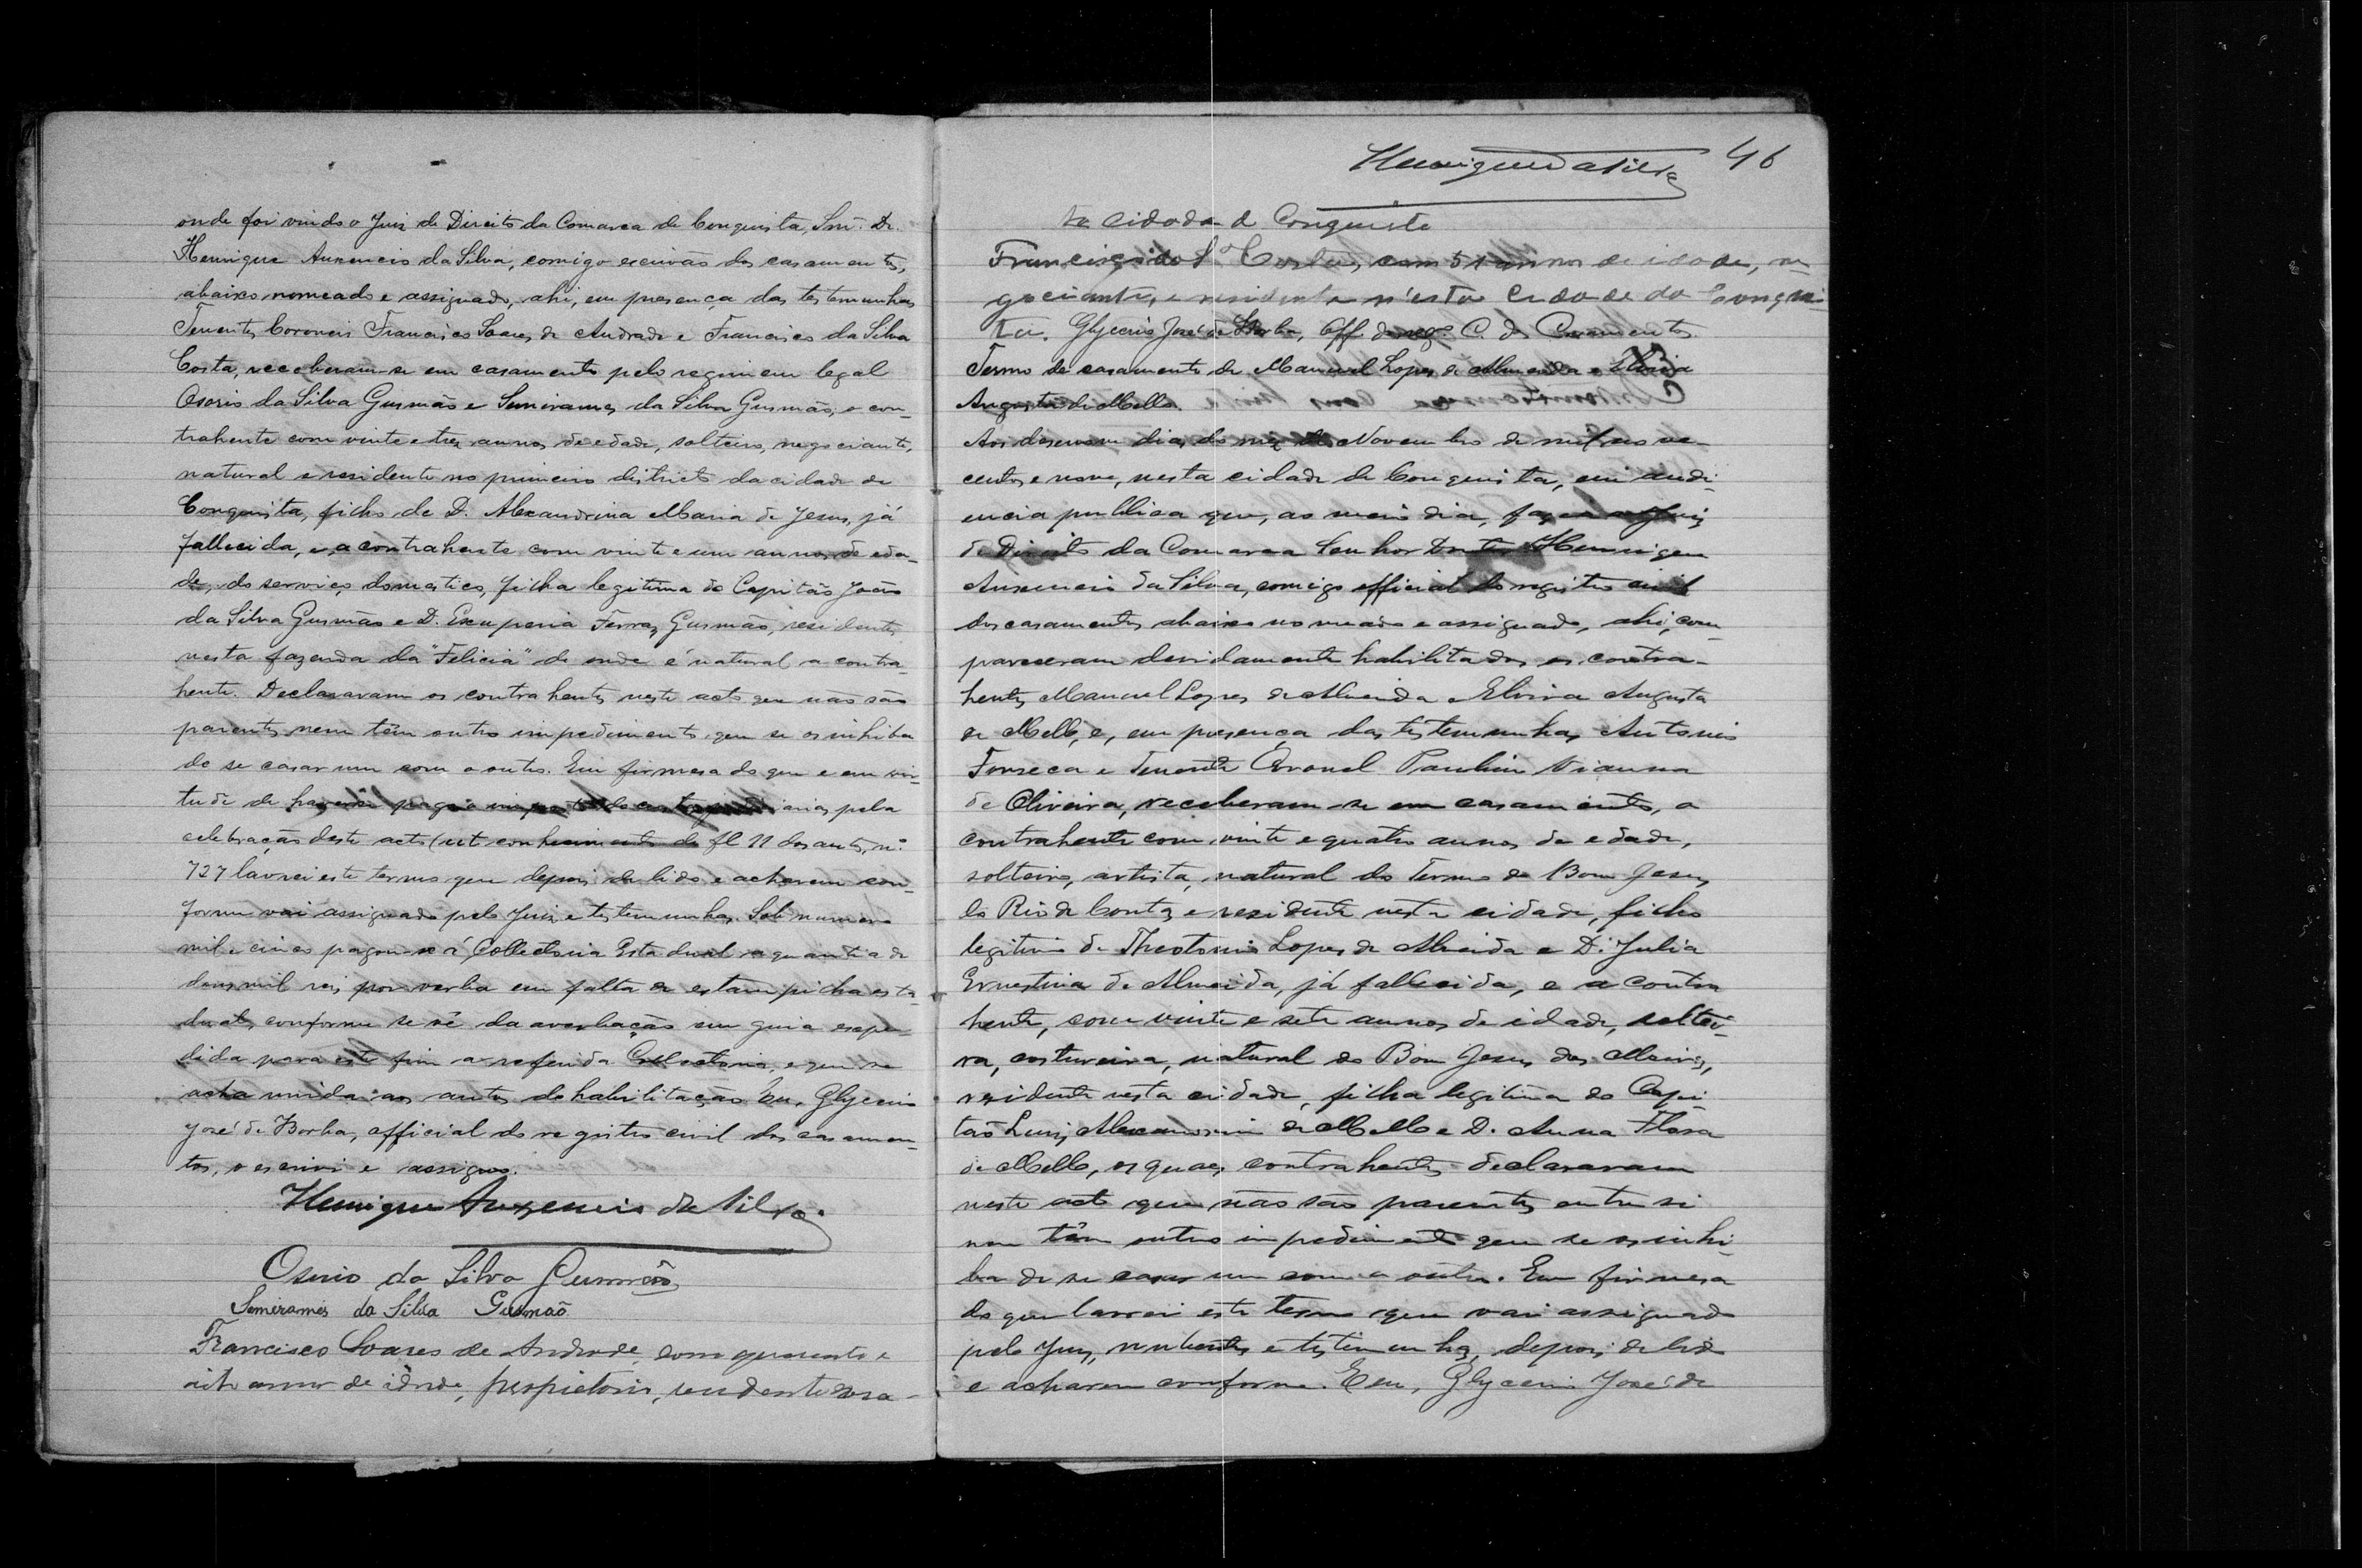 onde foi vindo o Juiz de Direito da Comarca de Conquista, Snr. Dr.
Henrique Auxencio da Silva, comigo escrivão dos casamentos,
abaixo nomeado e assignado, ahi, em presença das testemunhas
Tenentes Coroneis Francisco Soares de Andrade e Francisco da Silva
Costa, receberam-se em casamento pelo regimem legal
Osorio da Silva Gusmão e Semirames da Silva Gusmão, o con-
trahente com vinte e tres annos de edade, solteiro, negociante,
natural e residente no primeiro districto da cidade de
Conquista, filho de D. Alexandrina Maria de Jesus, já
fallecida, e a contrahente com vinte e um annos de eda-
de, do serviço domestico, filha legitima do Capitão João
da Silva Gusmão e D. Exuperia Ferraz Gusmão, residentes
nesta fazenda da "Felicia" de onde é natural a contra-
hente. Declararam os contrahentes neste acto que não são
parentes nem têm outro impedimento que se os inhiba
de se casar um com o outro. Em firmesa do que e em vir-
tude de pela
celebração deste acto (ut conhecimento de fl 11 dos autos, nº
727 lavrei este termo que depois de lido e acharem con-
forme vai assignado pelo Juiz e testemunhas. Sob numero
mil e cinco pagou-se á Collectoria Estadual a quantia de
dous mil reis por verba em falta de estampilha esta-
dual, conforme se vê da averbação em guia expe-
dida para este fim a referida Collectoria, e que se
acha unida aos autos de habilitação. Eu, Glycerio
José de Borba, official do registro civil dos casamen-
tos, o escrivi e assigno.
Henrique Auxencio da Silva
Osorio da Silva Gusmão
Semirames da Silva Gusmão
Francisco Soares de Andrade, com quarenta e
oito annos de idade, propietario, residente nesa-
Henrique da Silva 46
ta cidade de Conquista
Francisco da Sª Costa, com 51 annos de idade, ne-
gociante, e residente n'esta Cidade da Conquis-
ta. Glycerio José de Borba, Off. do regº C. de Casamentos.
Termo de casamento de Manuel Lopes de Almeida e Elvira
Augusta de Mello.
Aos desenove dias do mez de Novembro de mil nove-
centos e nove, nesta cidade de Conquista, em audi-
encia publica que, ao meio dia, faz o Juiz
de Direito da Comarca Senhor Doutor Henrique
Auxencio da Silva, comigo official do registro civil
dos casamentos abaixo nomeado e assignado, ahi, com-
pareceram devidamente habilitados os contra-
hentes Manuel Lopes de Almeida e Elvira Augusta
de Mello, e, em presença das testemunhas Antonio
Fonseca e Tenente Coronel Paulino Vianna
de Oliveira, receberam-se em casamento, o
contrahente com vinte e quatro annos de edade,
solteiro, artista, natural do Termo de Bom Jesus
do Rio de Contas e residente nesta cidade, filho
legitimo de Theotonio Lopes de Almeida e D. Julia
Ernestina de Almeida, já fallecida, e a contra
hente, com vinte e sete annos de idade, soltei-
ra, costureira, natural do Bom Jesus dos Meiras,
residente nesta cidade, filha legitima do Capi-
tão Luiz Alexandrino de Mello e D. Anna Flora
de Mello, os quaes contrahentes declararam
neste acto que não são parentes entre si
nem têm outro impedimento que se os inhi-
ba de se casar um com o outro. Em firmesa
do que lavrei este termo que vai assignado
pelo Juiz, nubentes e testemunhas, depois de lido
e acharem conforme. E eu, Glycerio José de